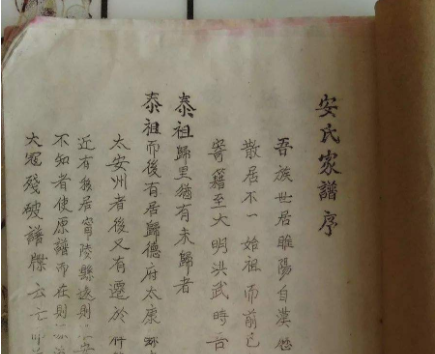 安氏家譜序
吾族世居睢陽自漢
散居不一始祖而前已
寄籍至大明洪武時言
泰祖歸里猶有未歸者
泰祖而後有居歸德府太康
太安州者後又有遷於
近有務居寧陵縣遠則
不知者使原譜而在則
大寇殘破譜牒云亡